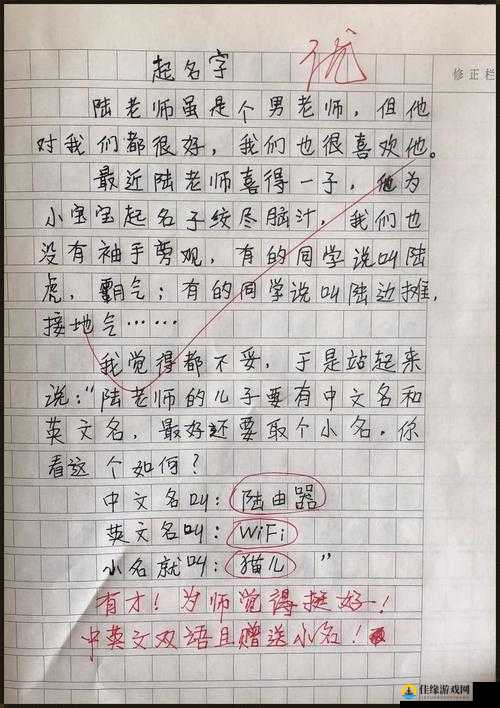 起名字
优
修正栏
陆老师虽是个男老师，但他
对我们都很好，我们也很喜欢他。
最近陆老师喜得一子，他为
小宝宝起名子绞尽脑汁，我们也
没有袖手剪观，有的同学说叫陆
虎，霸气；有的同学说叫陆边摊，
接地气……
我觉得都不妥，于是站起来
说：“陆老师的儿子要有中文名和
英文名，最好还要取个小名。你
看这个如何？
中文名叫：陆由器
英文名叫：WiFi
小名就叫：猫儿”
有才！为师觉得挺好！
中英文双语且赠送小名！
佳缘游戏网